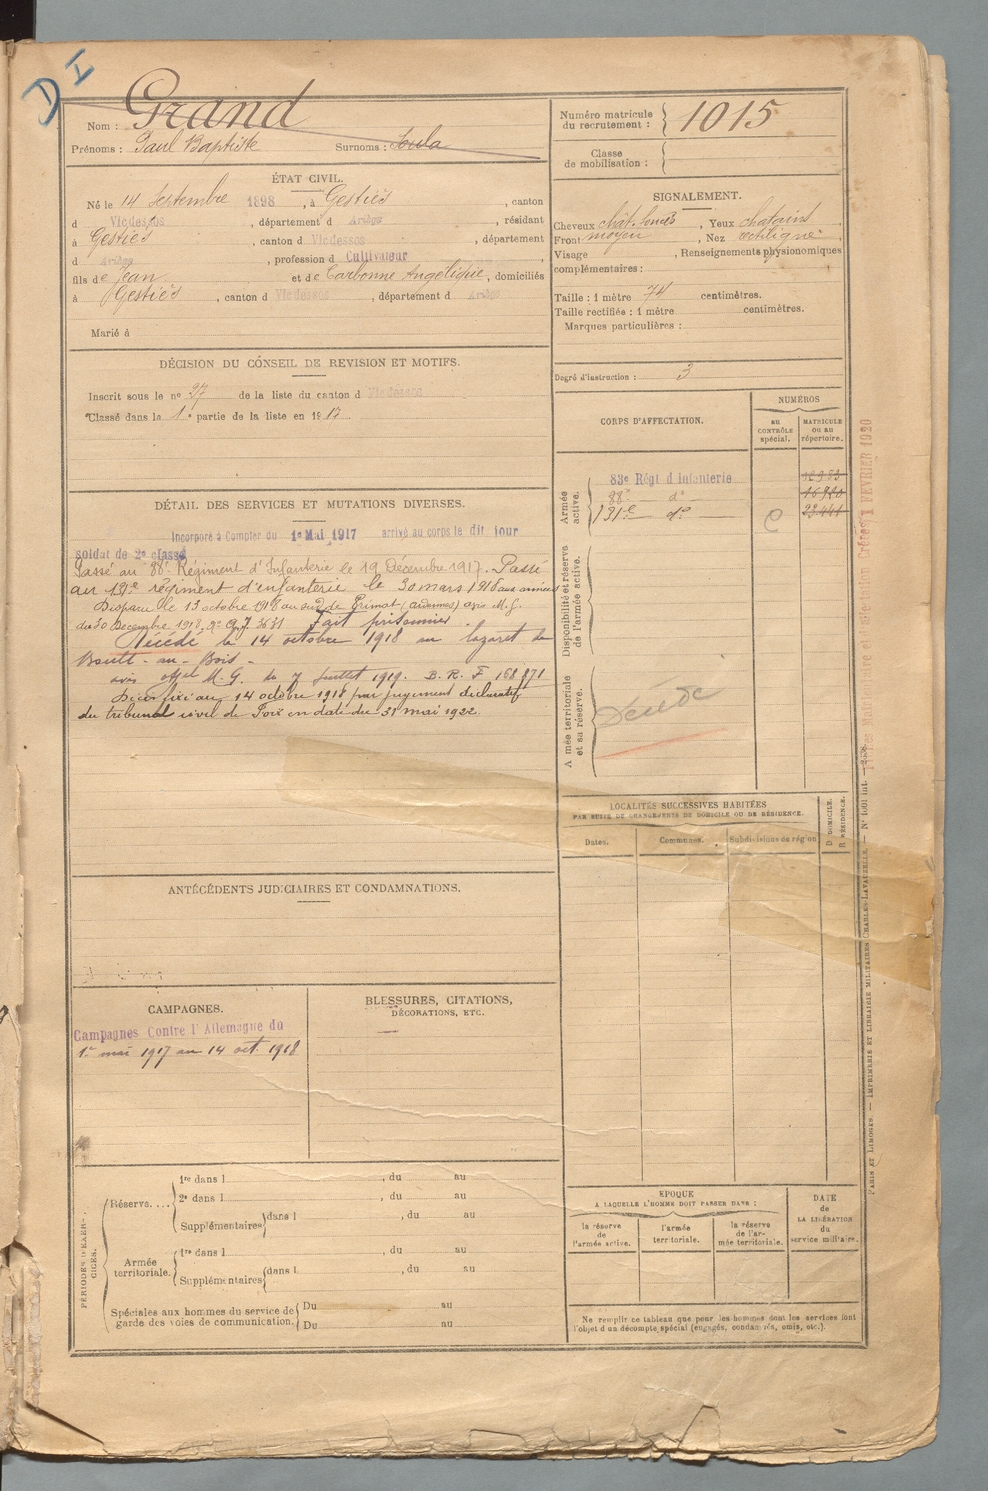 D I
Nom : Grand
Prénoms : Paul Baptiste Surnoms : Soula
Numéro matricule du recrutement : 1015
Classe de mobilisation :
ÉTAT CIVIL.
Né le 14 Septembre 1898, à Gestiès, canton
d Vicdessos, département d Ariège, résidant
à Gestiès, canton d Vicdessos, département
d Ariège, profession d Cultivateur,
fils de Jean et de Carbonne Angélique, domiciliés
à Gestiès, canton d Vicdessos, département d Ariège
Marié à
SIGNALEMENT.
Cheveux chât. foncés, Yeux chatains
Front moyen, Nez rectiligne,
Visage , Renseignements physionomiques
complémentaires :
Taille : 1 mètre 74 centimètres.
Taille rectifiée : 1 mètre centimètres.
Marques particulières :
Degré d'instruction : 3
DÉCISION DU CONSEIL DE REVISION ET MOTIFS.
Inscrit sous le no 27 de la liste du canton d Vicdessos
Classé dans la 1e partie de la liste en 1917
DÉTAIL DES SERVICES ET MUTATIONS DIVERSES.
Incorporé à Compter du 1e Mai 1917 arrivé au corps le dit jour
soldat de 2e classe
Passé au 88e Régiment d'Infanterie le 19 Décembre 1917. Passé
au 131e régiment d'infanterie le 30 mars 1918 aux armées
Disparu le 13 octobre 1918 au sud de Primat (Ardennes) avis M.G.
du 30 Décembre 1918 no 3631 Fait prisonnier.
Décédé le 14 octobre 1918 au lazaret de
Boult-au-Bois.
avis offel M.G. du 7 Juillet 1919. B.R.F 168871
Décès fixé au 14 octobre 1918 par jugement déclaratif
du tribunal civil de Foix en date du 31 mai 1922.
CORPS D'AFFECTATION.
NUMÉROS
au contrôle spécial.
matricule ou au répertoire.
Armée active.
83e Régt d'Infanterie
88e do
131e do
Disponibilité et réserve de l'armée active.
Armée territoriale et sa réserve.
Décédé
LOCALITÉS SUCCESSIVES HABITÉES
PAR SUITE DE CHANGEMENTS DE DOMICILE OU DE RÉSIDENCE.
Dates. Communes. Subdivisions de région
D. DOMICILE. R. RÉSIDENCE.
ANTÉCÉDENTS JUDICIAIRES ET CONDAMNATIONS.
CAMPAGNES.
Campagnes Contre l'Allemagne du
1er mai 1917 au 14 oct. 1918
BLESSURES, CITATIONS,
DÉCORATIONS, ETC.
PÉRIODES D'EXERCICES.
Réserve....
1re dans l , du au
2e dans l , du au
Supplémentaires dans l , du au
Armée territoriale.
1re dans l , du au
Supplémentaires dans l , du au
Spéciales aux hommes du service de garde des voies de communication.
Du au
Du au
EPOQUE
A LAQUELLE L'HOMME DOIT PASSER DANS :
la réserve de l'armée active.
l'armée territoriale.
la réserve de l'armée territoriale.
DATE de LA LIBÉRATION du service militaire.
Ne remplir ce tableau que pour les hommes dont les services font
l'objet d'un décompte spécial (engagés, condamnés, omis, etc.).
PARIS ET LIMOGES. — IMPRIMERIE ET LIBRAIRIE MILITAIRES CHARLES-LAVAUZELLE.